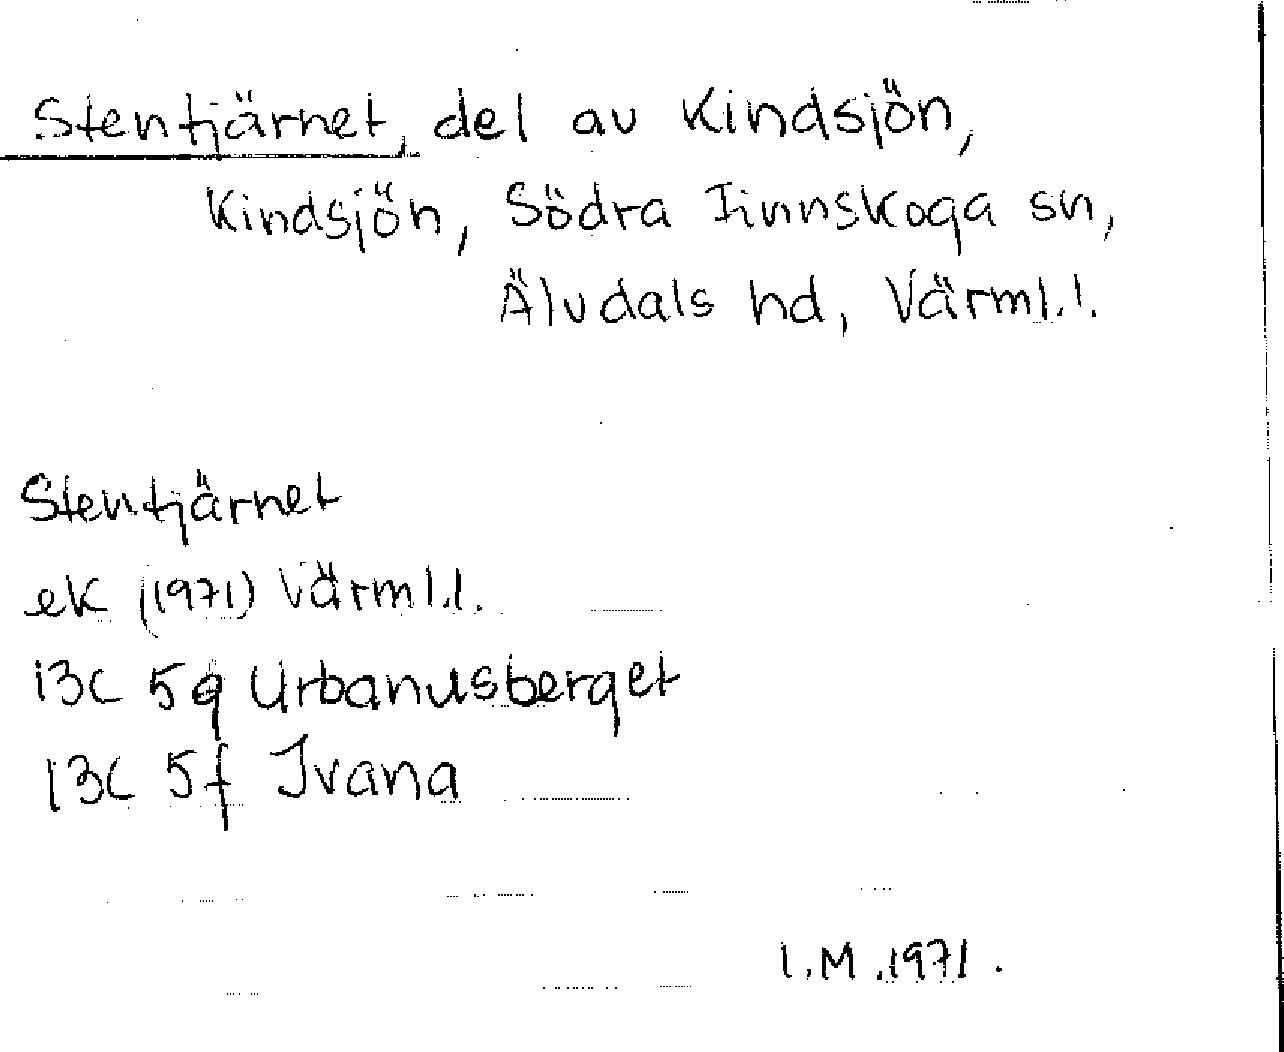 Stentjärnet, del av Kindsjön,
Kindsjön, Södra Finnskoga sn,
Älvdals hd, Värml.l.
Stentjärnet
ek (1971) Värml.l.
13C 5g Urbanusberget
13C 5f Ivana
I.M. 1971.